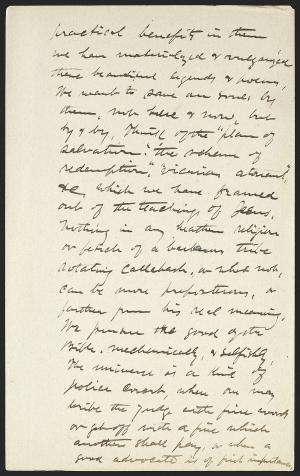 practical benefit in them
we have materialized & vulgarized
these beautiful legends & poems,
We want to save our souls by
them, not here & now, but
by & by. Think of the "plan of
salvation," "the scheme of
redemption," "vicarious atonement,"
&c, which we have framed
out of the teachings of Jesus.
Nothing in any heathen religion
or fetich of a barbarous tribe
rotating Callebash, or what not,
can be more preposterous, or
farther from his real meaning.
We pursue the good of the
Bible, mechanically, & selfishly.
The universe is a kind of
police court, when one may
bribe the Judge with fine words
or get off with a fine which
another shall pay, or when a
good advocate is of first importance